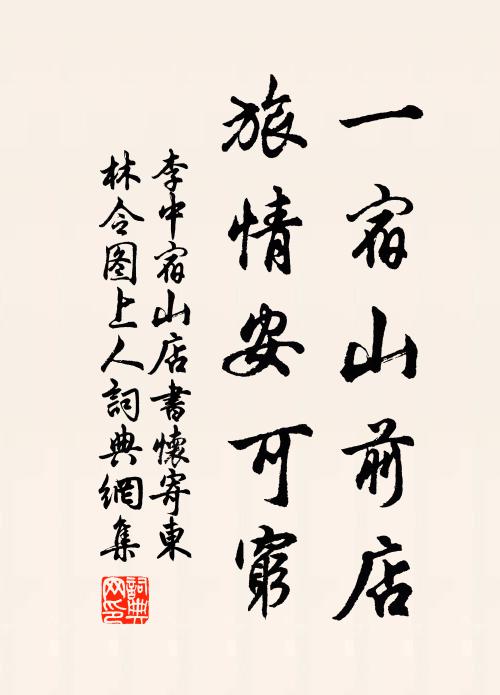 一宿山前店
旅情安可窮
李中宿山店書懷寄東
林令图上人詞典網集
詞典
网印